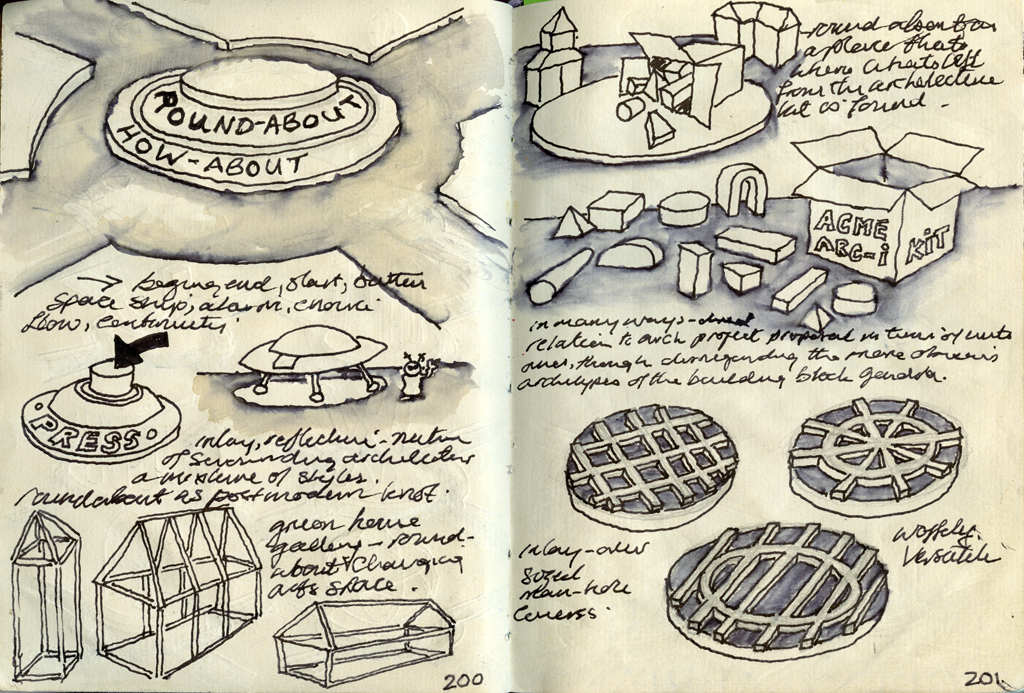 ROUND-ABOUT
HOW-ABOUT
begining, end, start, button
space ship, alarm,
PRESS
inlay, reflecting
of surrounding architecture
a mixture of styles.
roundabout as postmodern knot.
green house
gallery - round-
about changing
arts space.
200
round about as
a place that
where whats left
from the architecture
ACME
ARC-i
KiT
in many ways
relation to arch project proposed in terms of
though disregarding the more obvious
archetypes of the building block
inlay-over
sized
man-hole
covers.
waffeley.
versatile
201